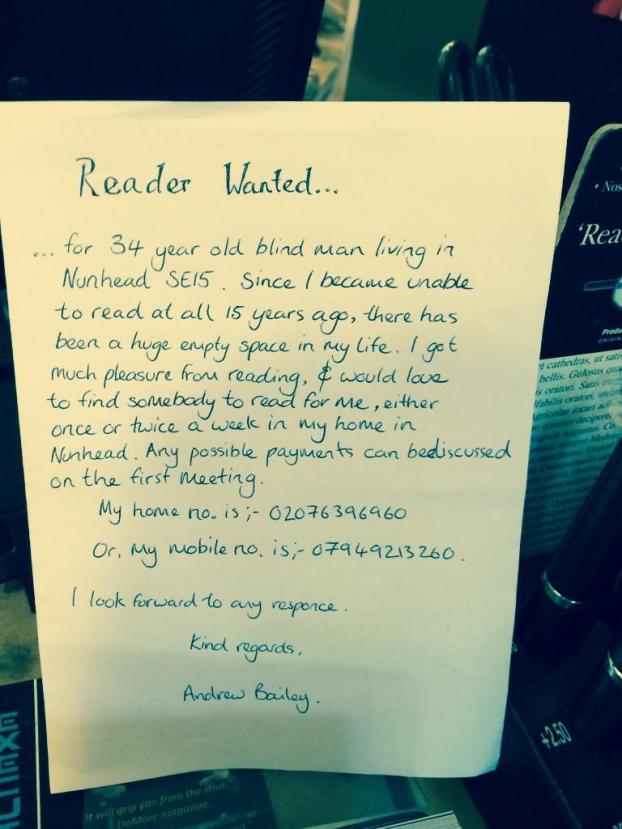 Reader Wanted...
... for 34 year old blind man living in
Nunhead SE15. Since I became unable
to read at all 15 years ago, there has
been a huge empty space in my life. I got
much pleasure from reading, & would love
to find somebody to read for me, either
once or twice a week in my home in
Nunhead. Any possible payments can bediscussed
on the first meeting.
My home no. is;- 02076396960
Or, My mobile no. is;- 07949213260.
I look forward to any responce.
Kind regards,
Andrew Bailey.
• Nos
'Rea
Produ
t cathedras, ut sati
bellis. Gulosus qua
is oratori. Satis
+2.50
It will grip you from the start,
DoMore magazine.